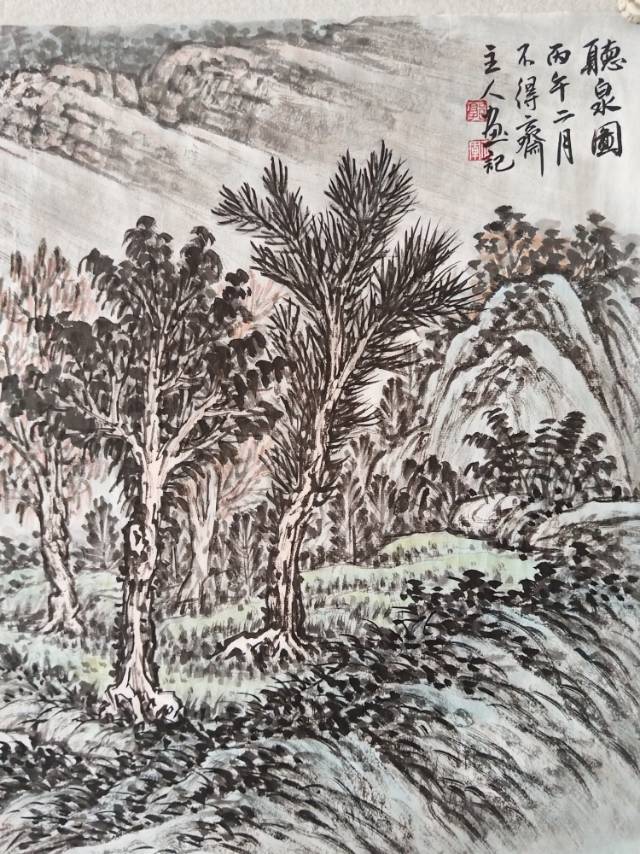 聽泉圖
丙午二月
不得齋
主人畫記